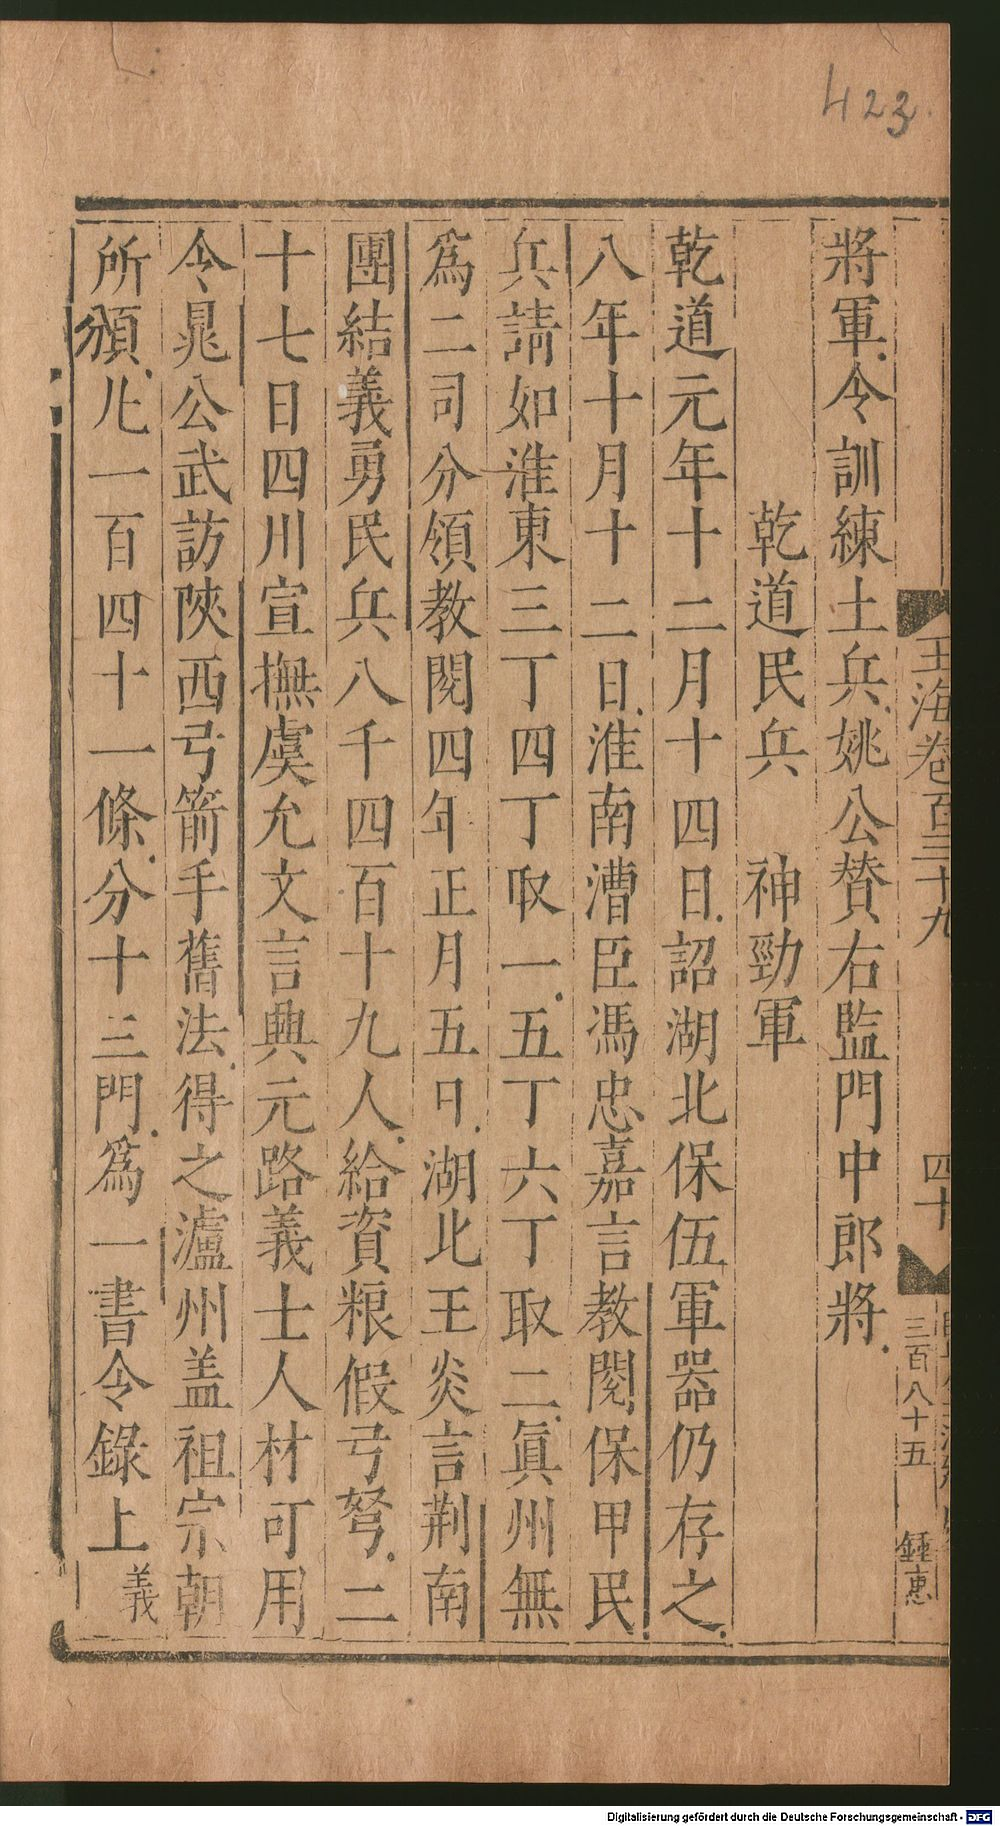 423
玉海卷百三十九
四十
三百八十五
鍾惠
將軍令訓練土兵姚公賛右監門中郎將
乾道民兵 神勁軍
乾道元年十二月十四日詔湖北保伍軍器仍存之
八年十月十二日淮南漕臣馮忠嘉言教閱保甲民
兵請如淮東三丁四丁取一五丁六丁取二眞州無
爲二司分領教閱四年正月五日湖北王炎言荆南
團結義勇民兵八千四百十九人給資粮假弓弩二
十七日四川宣撫虞允文言興元路義士人材可用
令晁公武訪陜西弓箭手舊法得之瀘州盖祖宗朝
所頒凡一百四十一條分十三門爲一書令錄上義
Digitalisierung gefördert durch die Deutsche Forschungsgemeinschaft - DFG